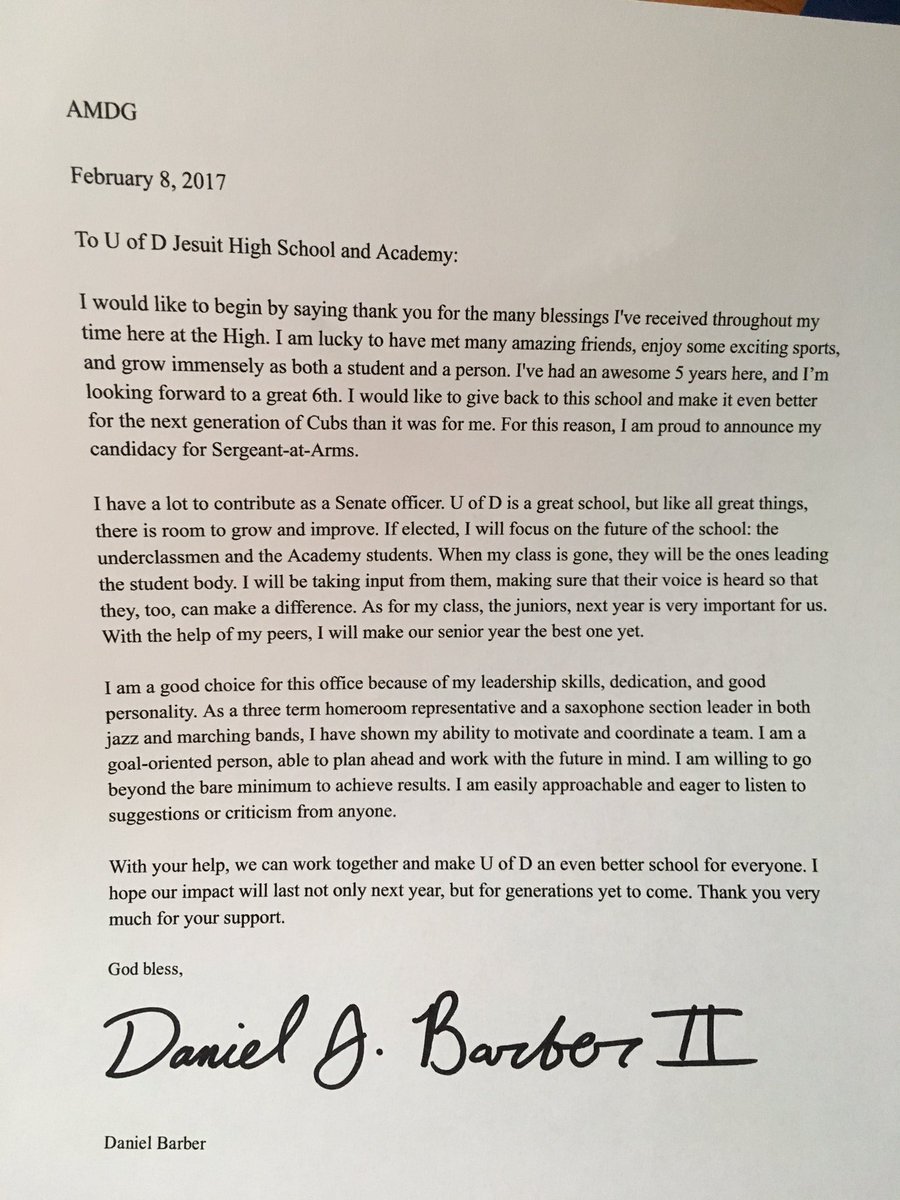 AMDG
February 8, 2017
To U of D Jesuit High School and Academy:
I would like to begin by saying thank you for the many blessings I've received throughout my
time here at the High. I am lucky to have met many amazing friends, enjoy some exciting sports,
and grow immensely as both a student and a person. I've had an awesome 5 years here, and I’m
looking forward to a great 6th. I would like to give back to this school and make it even better
for the next generation of Cubs than it was for me. For this reason, I am proud to announce my
candidacy for Sergeant-at-Arms.
I have a lot to contribute as a Senate officer. U of D is a great school, but like all great things,
there is room to grow and improve. If elected, I will focus on the future of the school: the
underclassmen and the Academy students. When my class is gone, they will be the ones leading
the student body. I will be taking input from them, making sure that their voice is heard so that
they, too, can make a difference. As for my class, the juniors, next year is very important for us.
With the help of my peers, I will make our senior year the best one yet.
I am a good choice for this office because of my leadership skills, dedication, and good
personality. As a three term homeroom representative and a saxophone section leader in both
jazz and marching bands, I have shown my ability to motivate and coordinate a team. I am a
goal-oriented person, able to plan ahead and work with the future in mind. I am willing to go
beyond the bare minimum to achieve results. I am easily approachable and eager to listen to
suggestions or criticism from anyone.
With your help, we can work together and make U of D an even better school for everyone. I
hope our impact will last not only next year, but for generations yet to come. Thank you very
much for your support.
God bless,
Daniel J. Barber II
Daniel Barber